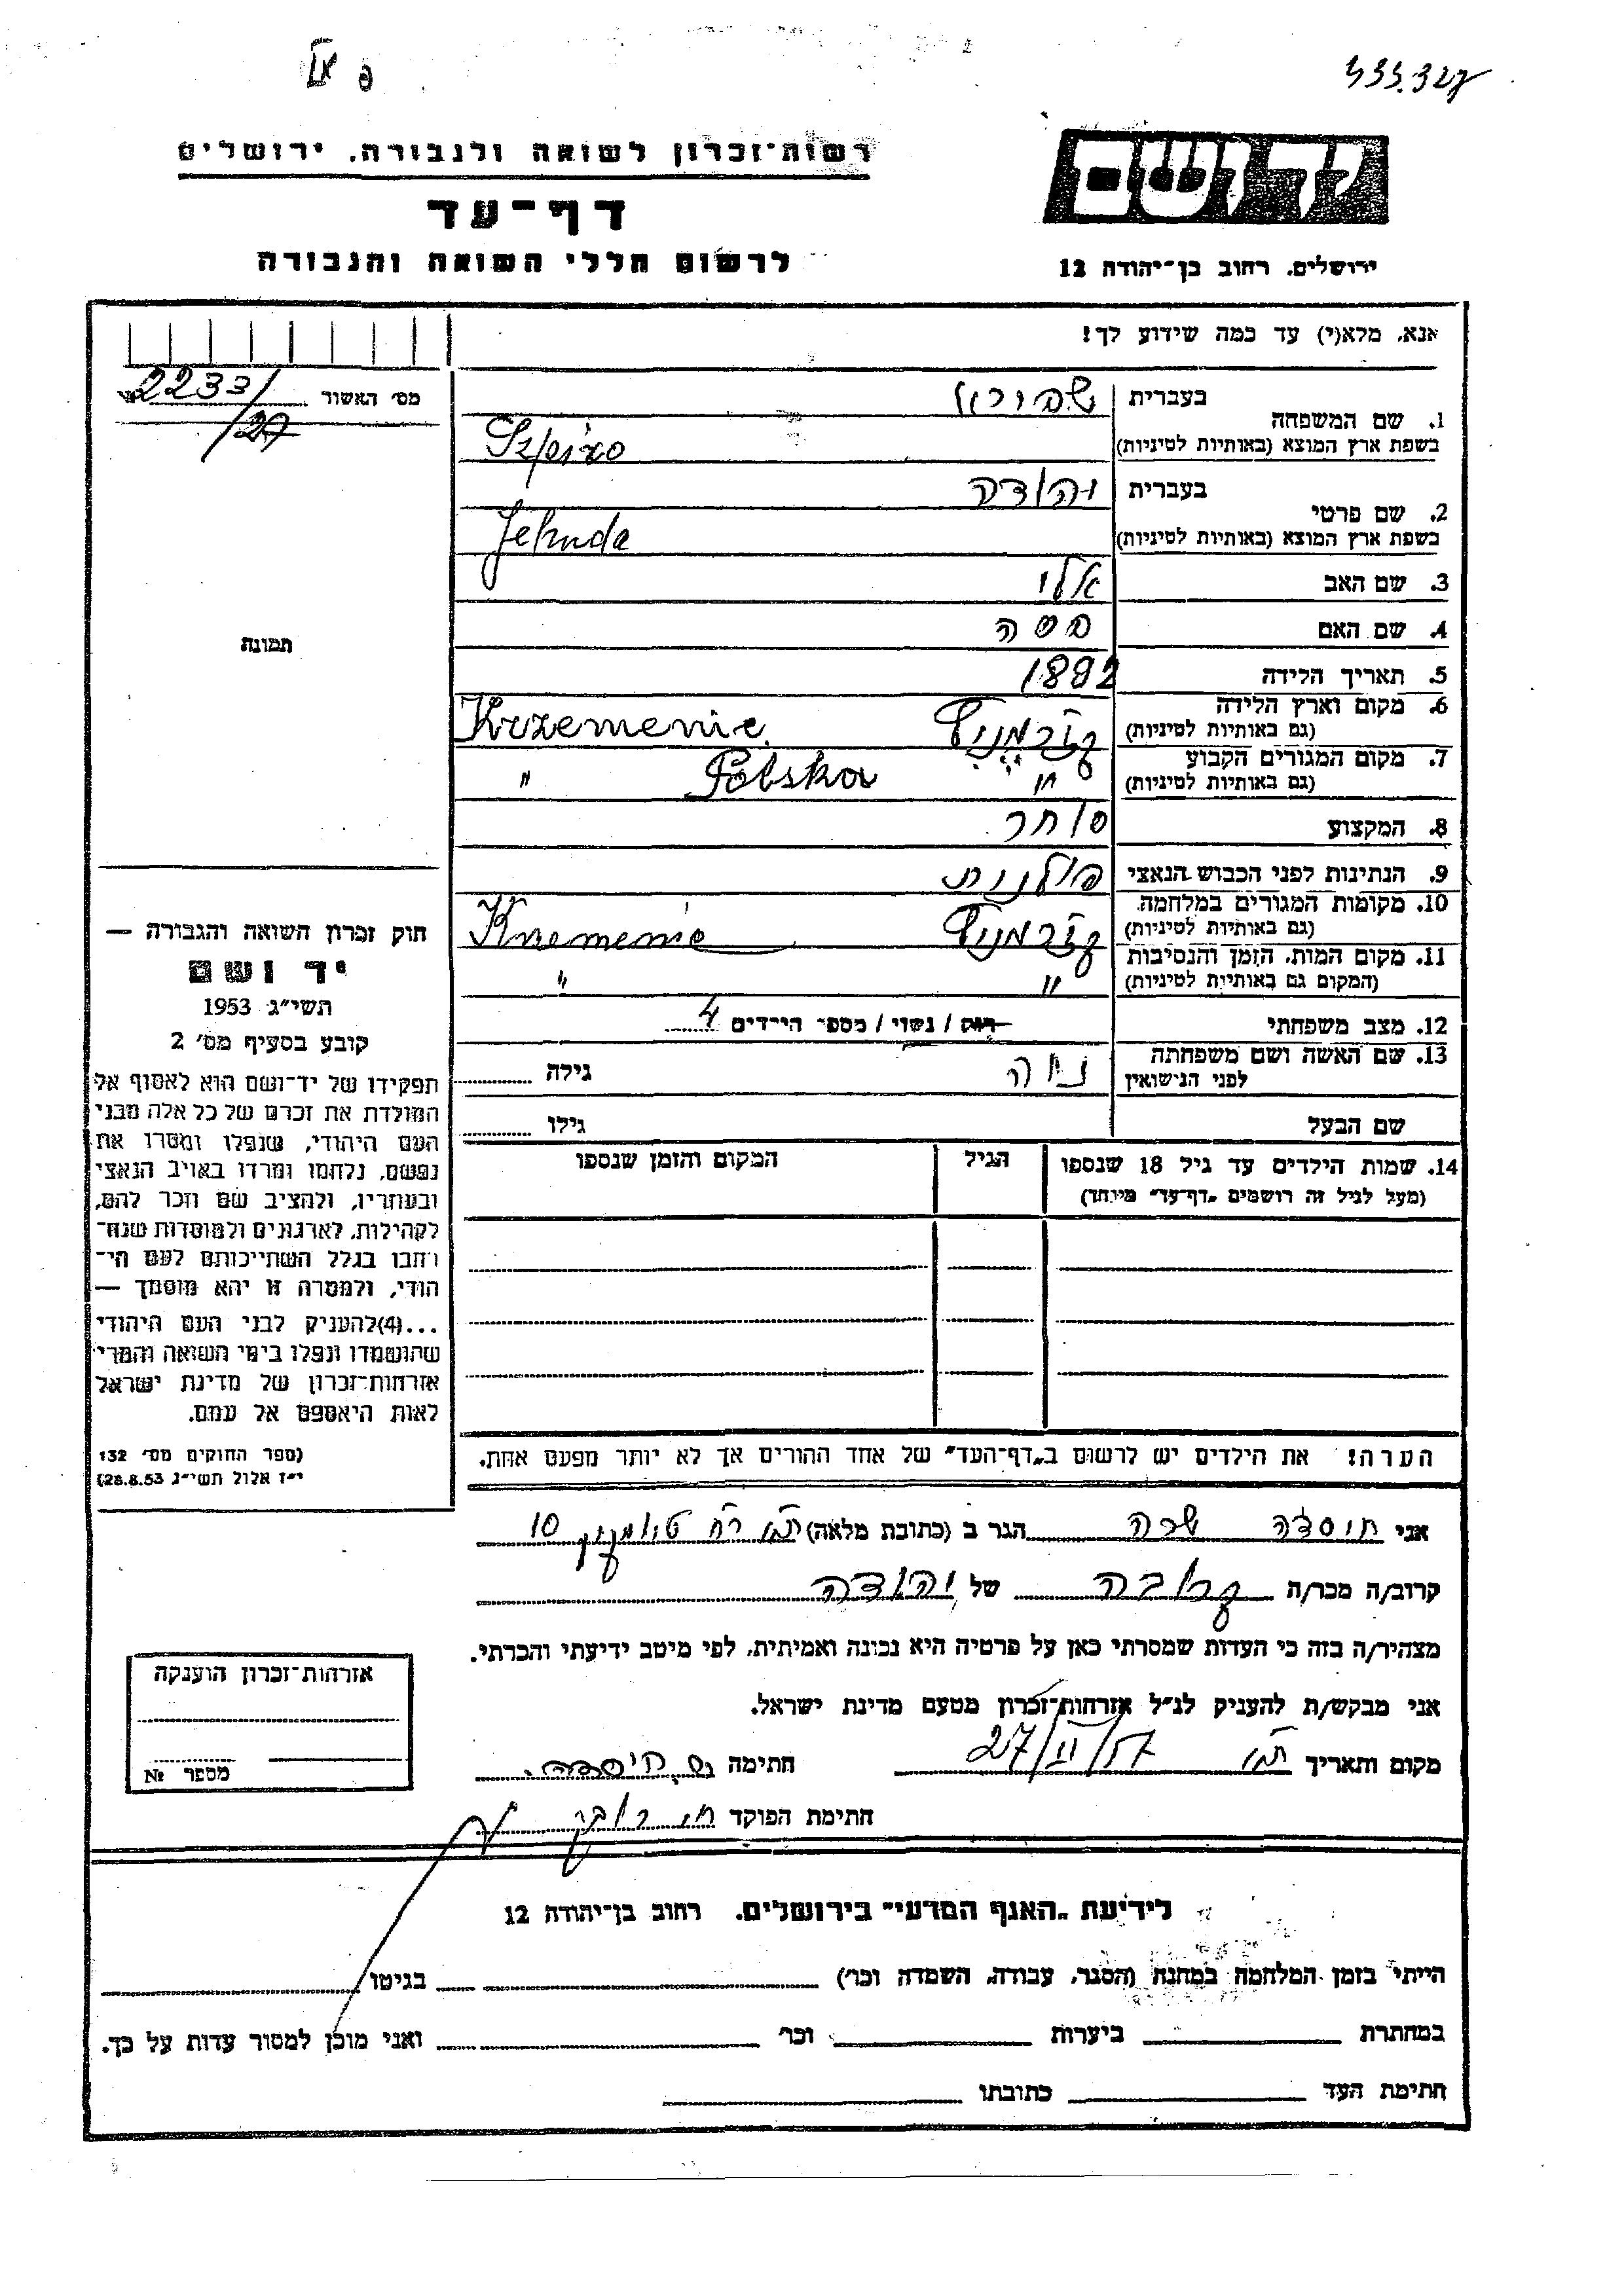 רשות־זכרון לשואה ולגבורה, ירושלים
דף־עד
לרשום חללי השואה והגבורה
יד ושם
ירושלים, רחוב בן־יהודה 12
אנא, מלא(י) עד כמה שידוע לך!
מס׳ האשור 2233/
/27
1. שם המשפחה בעברית שפירא
בשפת ארץ המוצא (באותיות לטיניות) Szpiro
2. שם פרטי בעברית יהודה
בשפת ארץ המוצא (באותיות לטיניות) Jehuda
3. שם האב אלי
4. שם האם פסה
תמונה
5. תאריך הלידה 1892
6. מקום וארץ הלידה
(גם באותיות לטיניות) קזרמניץ Krzemenie
7. מקום המגורים הקבוע
(גם באותיות לטיניות) " Polska "
8. המקצוע סוחר
9. הנתינות לפני הכבוש הנאצי פולנית
10. מקומות המגורים במלחמה
(גם באותיות לטיניות)
11. מקום המות, הזמן והנסיבות
(המקום גם באותיות לטיניות) " "
12. מצב משפחתי רווק / נשוי / מספר הילדים 4
13. שם האשה ושם משפחתה
לפני הנישואין גילה
שם הבעל גילו
14. שמות הילדים עד גיל 18 שנספו הגיל המקום והזמן שנספו
(מעל לגיל זה רושמים „דף־עד״ מיוחד)
הערה! את הילדים יש לרשום ב„דף־העד״ של אחד ההורים אך לא יותר מפעם אחת.
חוק זכרון השואה והגבורה —
יד ושם
תשי״ג 1953
קובע בסעיף מס׳ 2
תפקידו של יד־ושם הוא לאסוף אל
המולדת את זכרם של כל אלה מבני
העם היהודי, שנפלו ומסרו את
נפשם, נלחמו ומרדו באויב הנאצי
ובעוזריו, ולהציב שם וזכר להם,
לקהילות, לארגונים ולמוסדות שנח־
רחבו בגלל השתייכותם לעם הי־
הודי, ולמטרה זו יהא מוסמך —
...(4)להעניק לבני העם היהודי
שהושמדו ונפלו בימי השואה והמרי
אזרחות־זכרון של מדינת ישראל
לאות היאספם אל עמם.
(ספר החוקים מס׳ 132
י״ז אלול תשי״ג 28.8.53)
אני שרה הגר ב (כתובת מלאה) 10
קרוב/ה מכר/ה קרובה של יהודה
מצהיר/ה בזה כי העדות שמסרתי כאן על פרטיה היא נכונה ואמיתית, לפי מיטב ידיעתי והכרתי.
אני מבקש/ת להעניק לנ״ל אזרחות־זכרון מטעם מדינת ישראל.
מקום ותאריך חתימה
חתימת הפוקד
אזרחות־זכרון הוענקה
מספר №
לידיעת „האגף המדעי״ בירושלים, רחוב בן־יהודה 12
הייתי בזמן המלחמה במחנה (הסגר, עבודה, השמדה וכו׳) בגיטו
במחתרת ביערות וכו׳ ואני מוכן למסור עדות על כך.
חתימת העד כתובתו